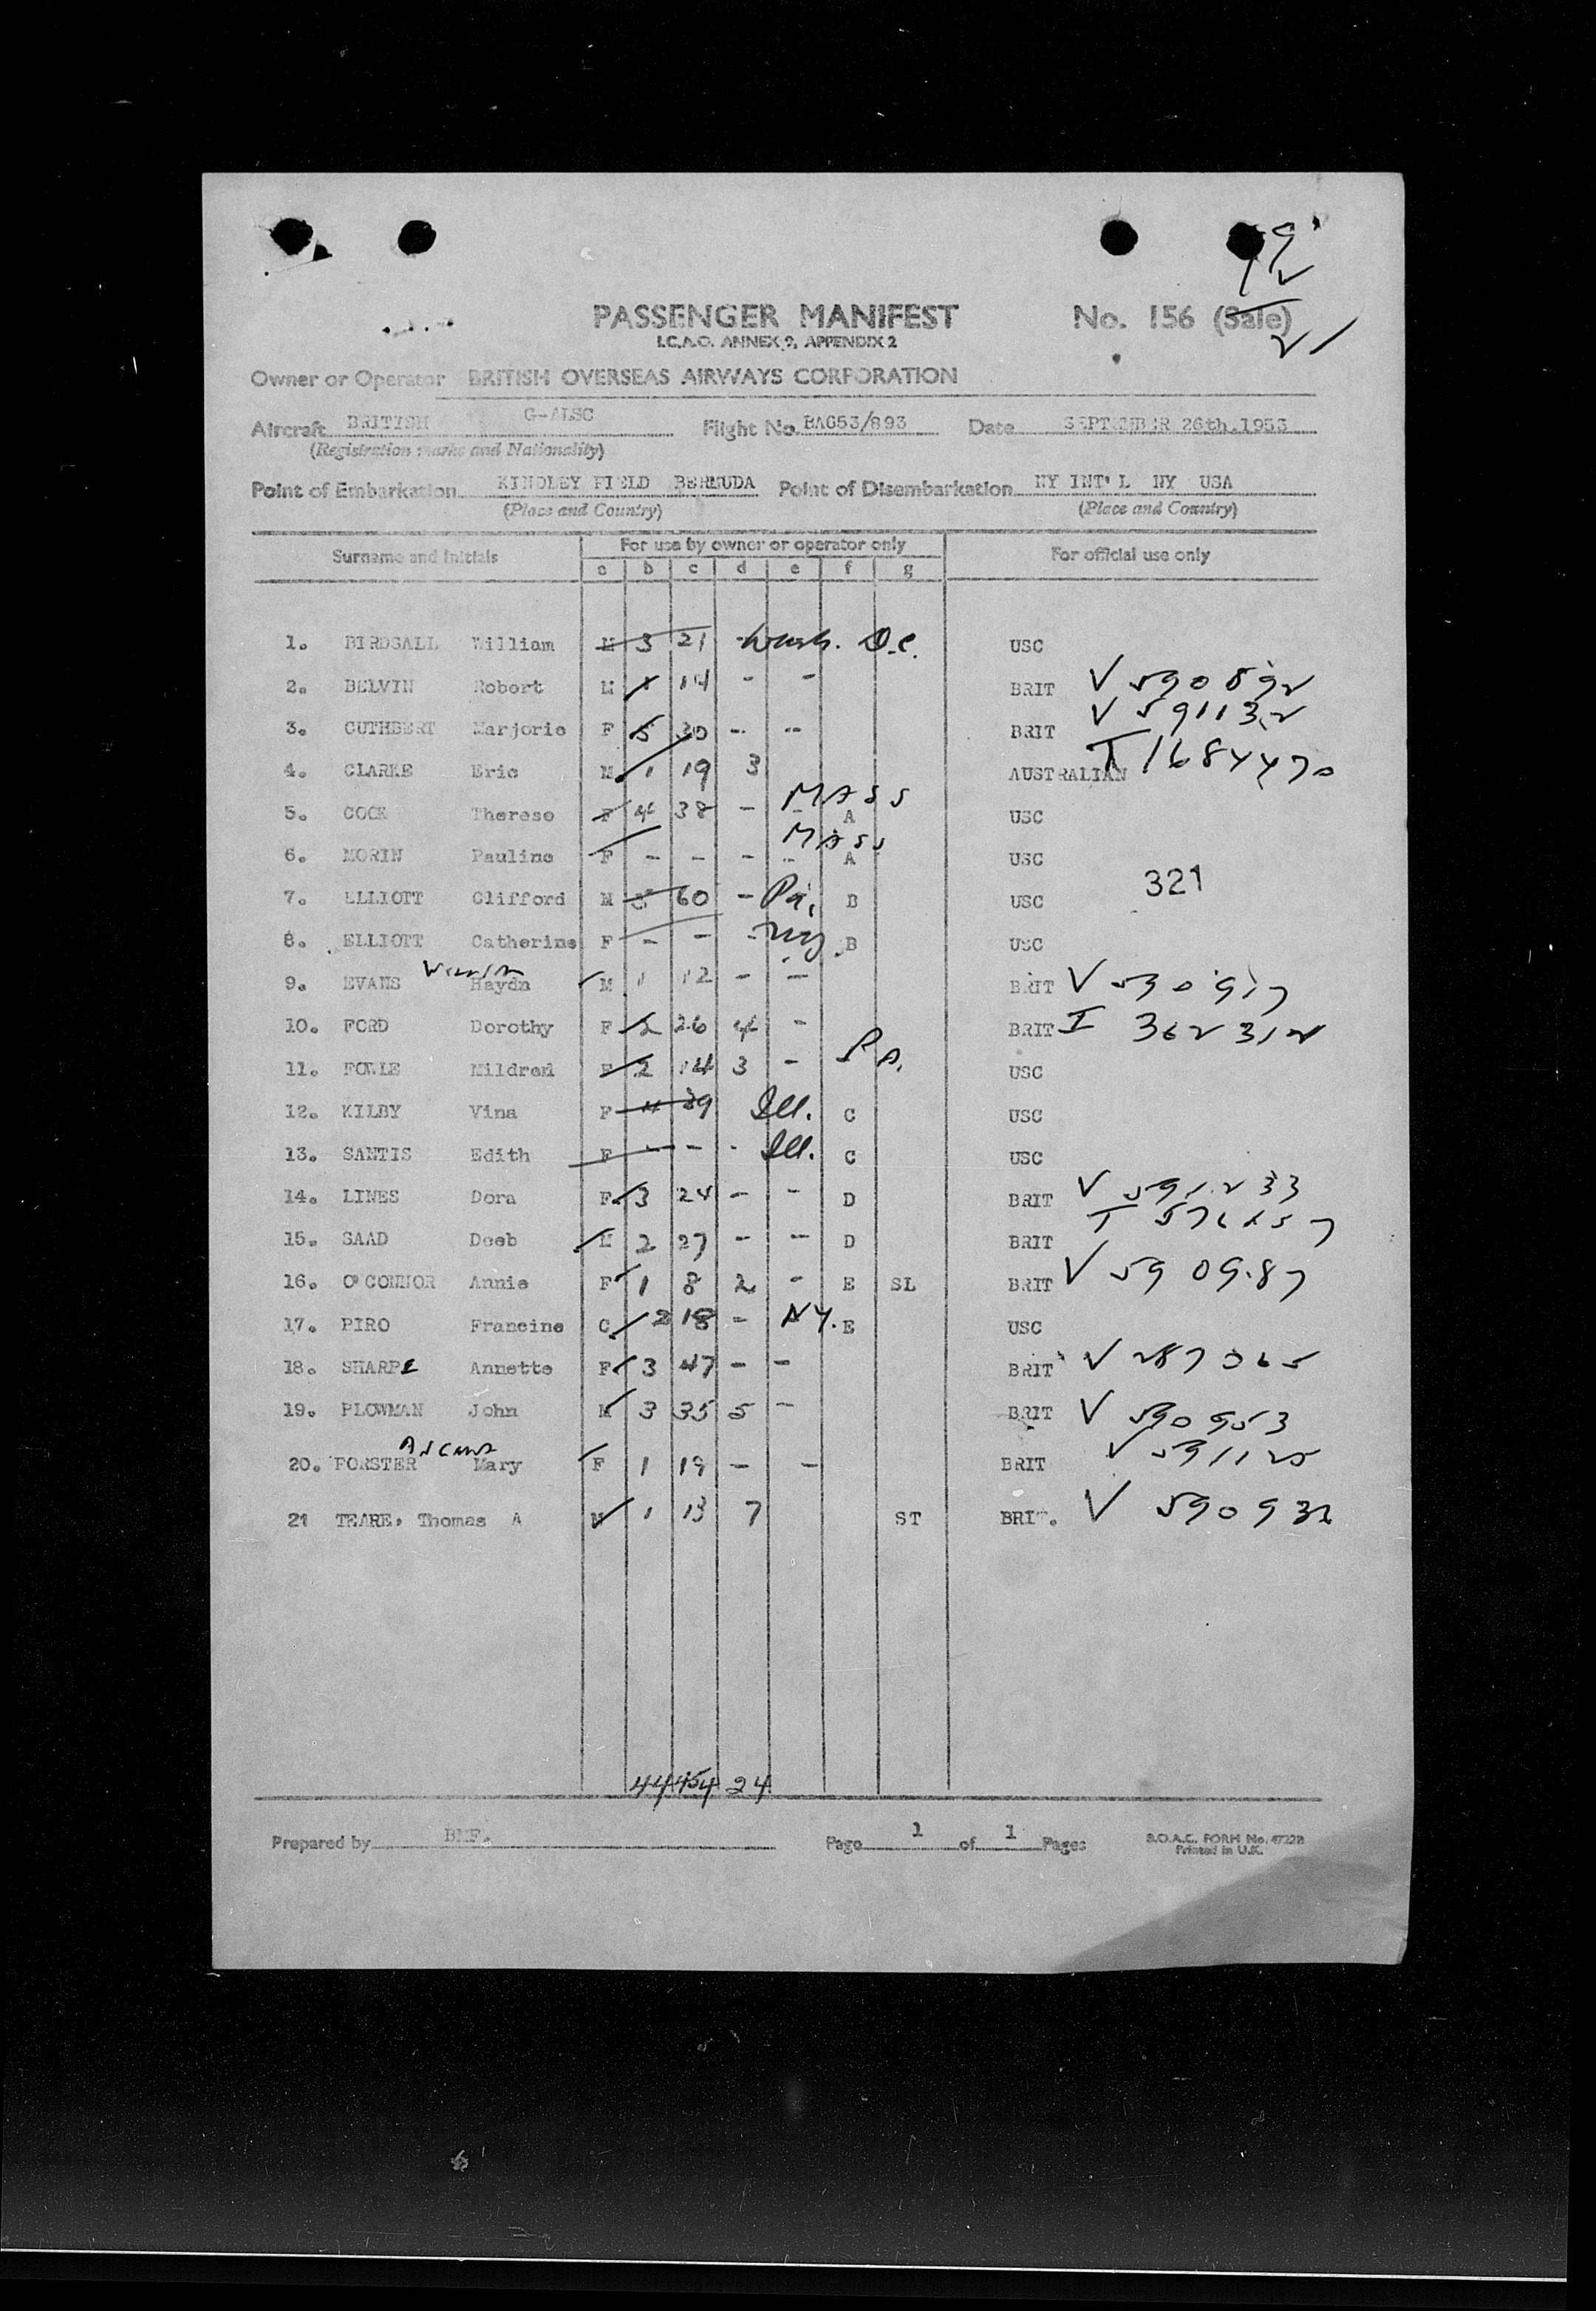 PASSENGER MANIFEST
I.C.A.O. ANNEX 9, APPENDIX 2
No. 156 (Sale)
21
Owner or Operator BRITISH OVERSEAS AIRWAYS CORPORATION
Aircraft BRITISH G-ALSC Flight No. BA653/893 Date SEPTEMBER 26th.1953
(Registration marks and Nationality)
Point of Embarkation KINDLEY FIELD BERMUDA Point of Disembarkation NY INT'L NY USA
(Place and Country) (Place and Country)
Surname and Initials For use by owner or operator only For official use only
a b c d e f g
1. BIRDSALL William M 3 21 - Wash. D.C. USC
2. BELVIN Robert M 1 14 - - BRIT V 590892
3. CUTHBERT Marjorie F 5 30 - -- BRIT V 591132
4. CLARKE Eric M 1 19 3 AUSTRALIAN T 1684470
5. COOK Therese F 4 38 - - MASS A USC
6. MORIN Pauline F - - - -- MASS A USC
7. ELLIOTT Clifford M 5 60 - Pa. B USC 321
8. ELLIOTT Catherine F - - - B USC
9. EVANS Haydn M 1 12 - - BRIT V 590917
10. FORD Dorothy F 2 26 4 - BRIT I 362312
11. FOWLE Mildred F 2 14 3 - PA. USC
12. KILBY Vina F 4 39 Ill. C USC
13. SANTIS Edith F - - - Ill. C USC
14. LINES Dora F 3 24 - - D BRIT V 591233
15. SAAD Deeb M 2 27 - -- D BRIT T
16. O'CONNOR Annie F 1 8 2 - E SL BRIT V 590987
17. PIRO Francine C 2 18 - NY. E USC
18. SHARPE Annette F 3 47 - - BRIT V 287065
19. PLOWMAN John M 3 35 5 - BRIT V 590953
20. FORSTER Mary F 1 19 - - BRIT V 591125
21 TEARE, Thomas A M 1 13 7 ST BRIT. V 590932
44 454 24
Prepared by BMF. Page 1 of 1 Pages B.O.A.C. FORM No. 4722B
Printed in U.K.